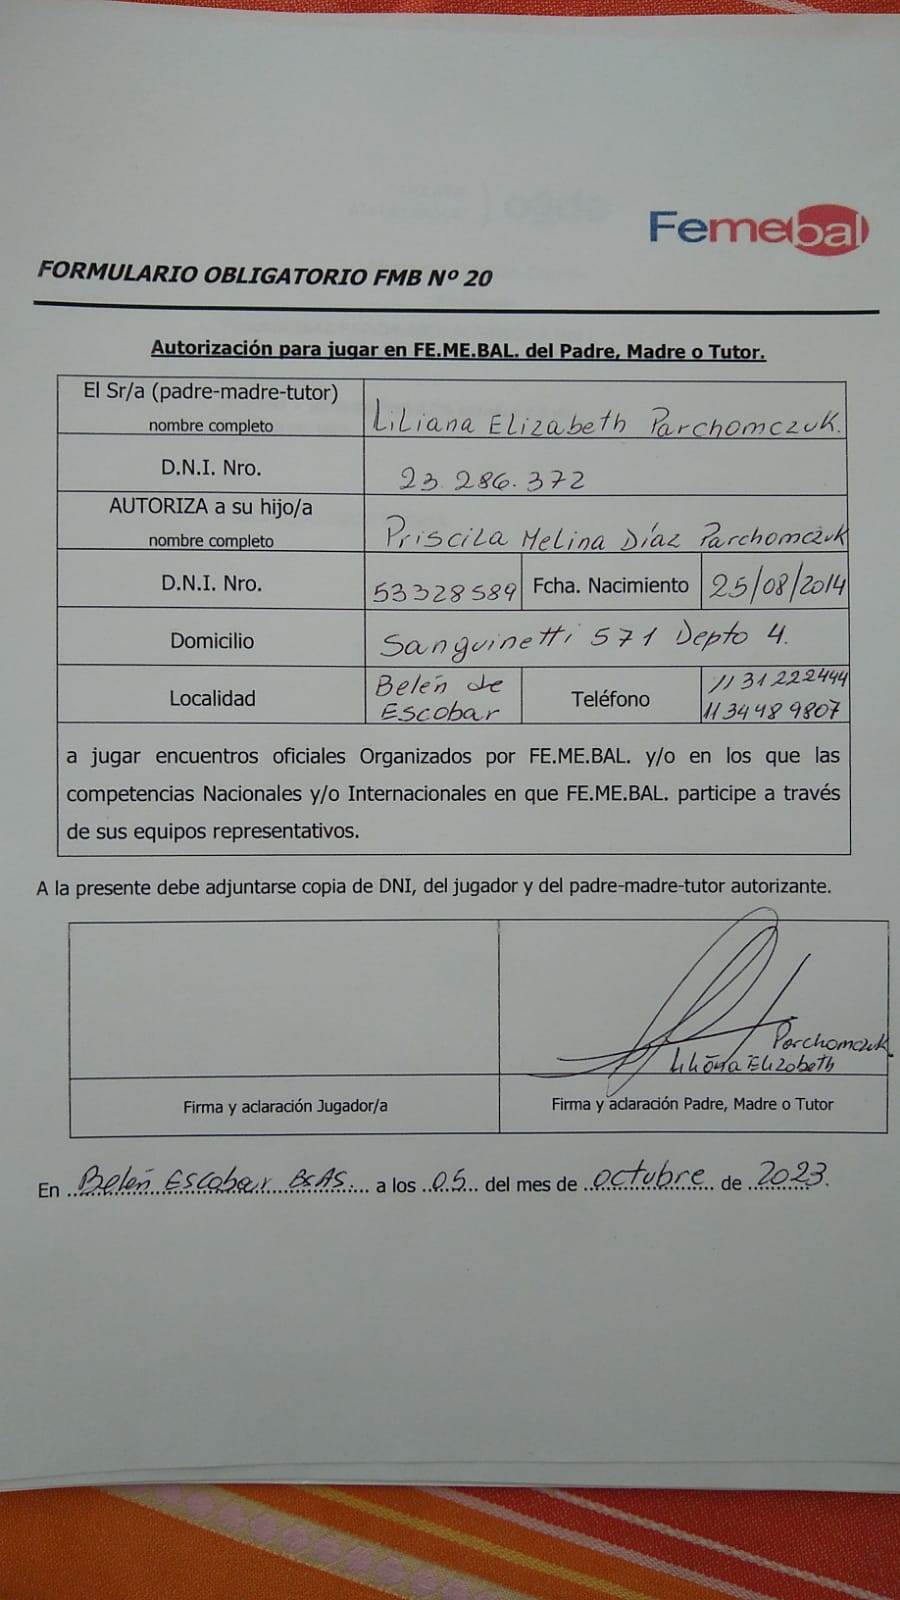 Femebal
FORMULARIO OBLIGATORIO FMB Nº 20
Autorización para jugar en FE.ME.BAL. del Padre, Madre o Tutor.
El Sr/a (padre-madre-tutor)
nombre completo
Liliana Elizabeth Parchomczuk.
D.N.I. Nro.
23.286.372
AUTORIZA a su hijo/a
nombre completo
Priscila Melina Díaz Parchomczuk
D.N.I. Nro.
53328589
Fcha. Nacimiento
25/08/2014
Domicilio
Sanguinetti 571 Depto 4.
Localidad
Belén de
Escobar
Teléfono
1131222444
1134489807
a jugar encuentros oficiales Organizados por FE.ME.BAL. y/o en los que las
competencias Nacionales y/o Internacionales en que FE.ME.BAL. participe a través
de sus equipos representativos.
A la presente debe adjuntarse copia de DNI, del jugador y del padre-madre-tutor autorizante.
Parchomczuk
Liliana Elizabeth
Firma y aclaración Jugador/a
Firma y aclaración Padre, Madre o Tutor
En Belén Escobar BsAS. a los 05 del mes de octubre de 2023.